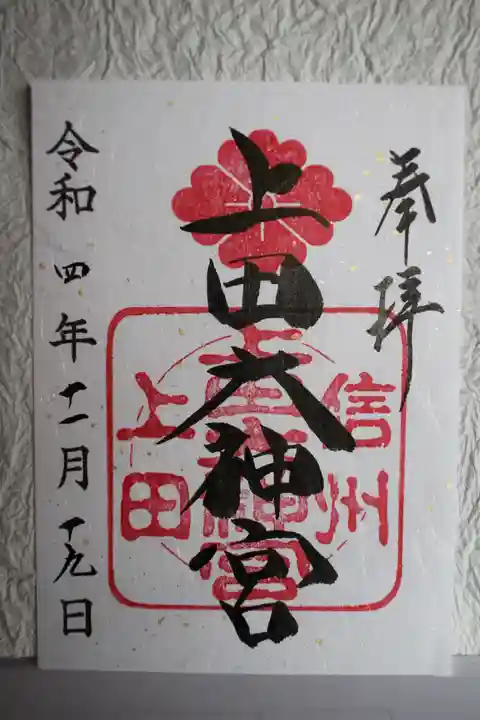 奉拝
上田大神宮
信州
上田
令和四年十一月十九日